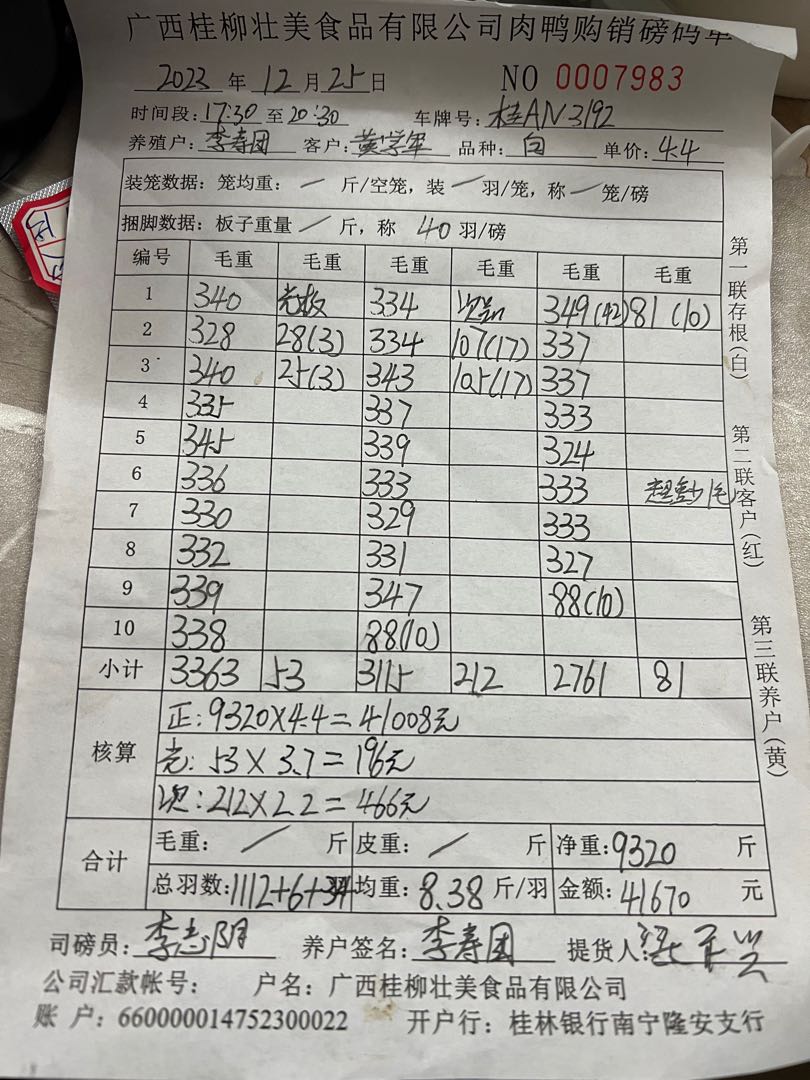 广西桂柳壮美食品有限公司肉鸭购销磅码单
2023 年 12 月 25 日 NO 0007983
时间段: 17:30 至 20:30 车牌号: 桂AN3192
养殖户: 李寿团 客户: 黄学军 品种: 白 单价: 4.4
装笼数据: 笼均重: / 斤/空笼, 装 / 羽/笼, 称 / 笼/磅
捆脚数据: 板子重量 / 斤, 称 40 羽/磅
编号 毛重 毛重 毛重 毛重 毛重 毛重
1 340 光板 334 349(42) 81(10)
2 328 28(3) 334 107(17) 337
3 340 25(3) 343 105(17) 337
4 335 337 333
5 345 339 324
6 336 333 333
7 330 329 333
8 332 331 327
9 339 347 88(10)
10 338 88(10)
小计 3363 53 3115 212 2761 81
核算 正: 9320×4.4=41008元
光: 53×3.7=196元
次: 212×2.2=466元
合计 毛重: / 斤 皮重: / 斤 净重: 9320 斤
总羽数: 1112+6+34 均重: 8.38 斤/羽 金额: 41670 元
司磅员: 李志阴 养户签名: 李寿团 提货人:
公司汇款帐号: 户名: 广西桂柳壮美食品有限公司
账 户: 660000014752300022 开户行: 桂林银行南宁隆安支行
第一联存根(白)
第二联客户(红)
第三联养户(黄)